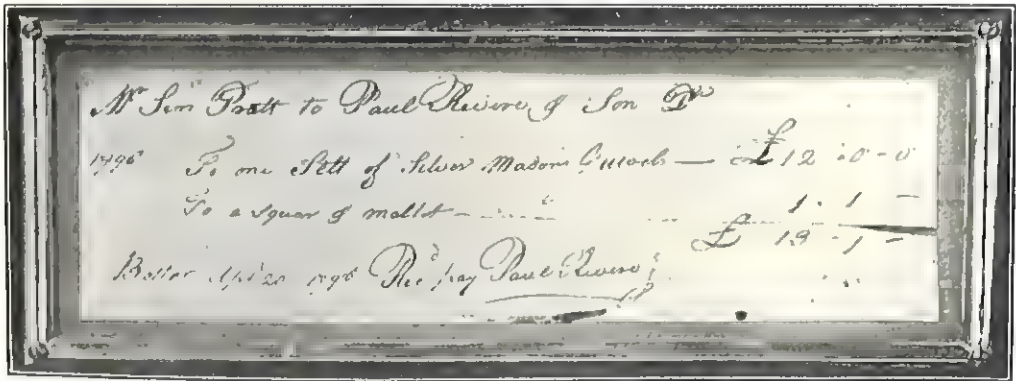 Mr Sim Pratt to Paul Revere & Son Dr
1796 To one Sett of Silver Masons Jewels — £ 12 - 0 - 0
To a Squar & mallet — 1 - 1 -
£ 13 - 1 -
Boston Apl 20 1796 Recd pay Paul Revere